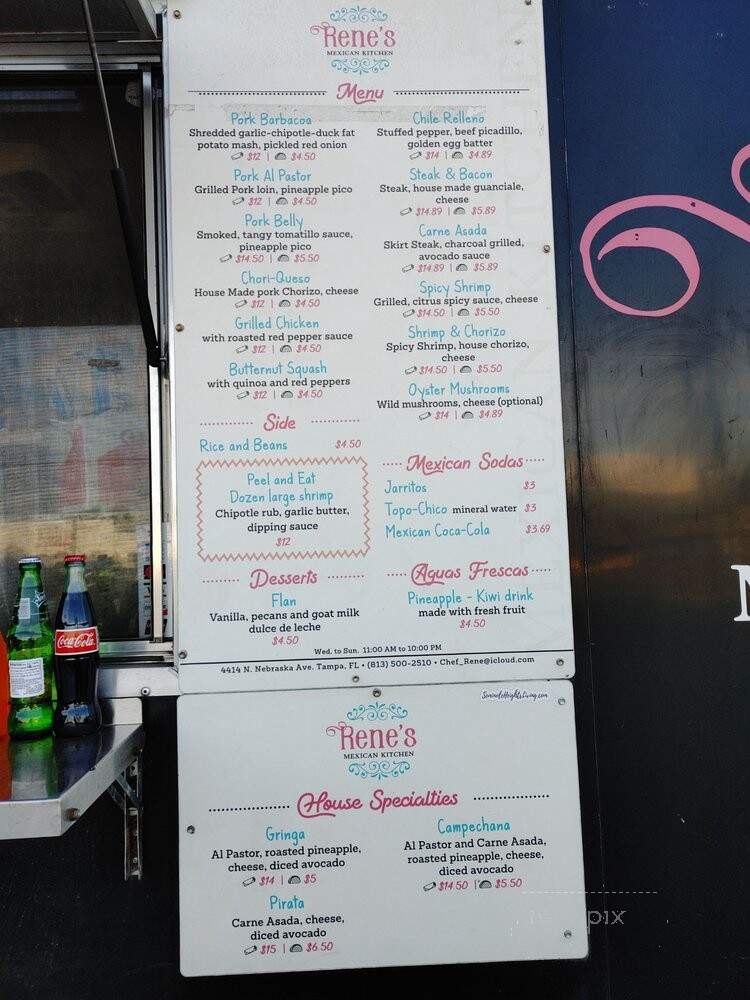 Rene's
MEXICAN KITCHEN
Menu
Pork Barbacoa
Shredded garlic-chipotle-duck fat
potato mash, pickled red onion
$12 | $4.50
Pork Al Pastor
Grilled Pork loin, pineapple pico
$12 | $4.50
Pork Belly
Smoked, tangy tomatillo sauce,
pineapple pico
$14.50 | $5.50
Chori-Queso
House Made pork Chorizo, cheese
$12 | $4.50
Grilled Chicken
with roasted red pepper sauce
$12 | $4.50
Butternut Squash
with quinoa and red peppers
$12 | $4.50
Side
Rice and Beans $4.50
Peel and Eat
Dozen large shrimp
Chipotle rub, garlic butter,
dipping sauce
$12
Desserts
Flan
Vanilla, pecans and goat milk
dulce de leche
$4.50
Chile Relleno
Stuffed pepper, beef picadillo,
golden egg batter
$14 | $4.89
Steak & Bacon
Steak, house made guanciale,
cheese
$14.89 | $5.89
Carne Asada
Skirt Steak, charcoal grilled,
avocado sauce
$14.89 | $5.89
Spicy Shrimp
Grilled, citrus spicy sauce, cheese
$14.50 | $5.50
Shrimp & Chorizo
Spicy Shrimp, house chorizo,
cheese
$14.50 | $5.50
Oyster Mushrooms
Wild mushrooms, cheese (optional)
$14 | $4.89
Mexican Sodas
Jarritos $3
Topo-Chico mineral water $3
Mexican Coca-Cola $3.69
Aguas Frescas
Pineapple - Kiwi drink
made with fresh fruit
$4.50
Wed. to Sun. 11:00 AM to 10:00 PM
4414 N. Nebraska Ave. Tampa, FL • (813) 500-2510 • Chef_Rene@icloud.com
SeminoleHeightsLiving.com
Rene's
MEXICAN KITCHEN
House Specialties
Gringa
Al Pastor, roasted pineapple,
cheese, diced avocado
$14 | $5
Pirata
Carne Asada, cheese,
diced avocado
$15 | $6.50
Campechana
Al Pastor and Carne Asada,
roasted pineapple, cheese,
diced avocado
$14.50 | $5.50
Coca-Cola